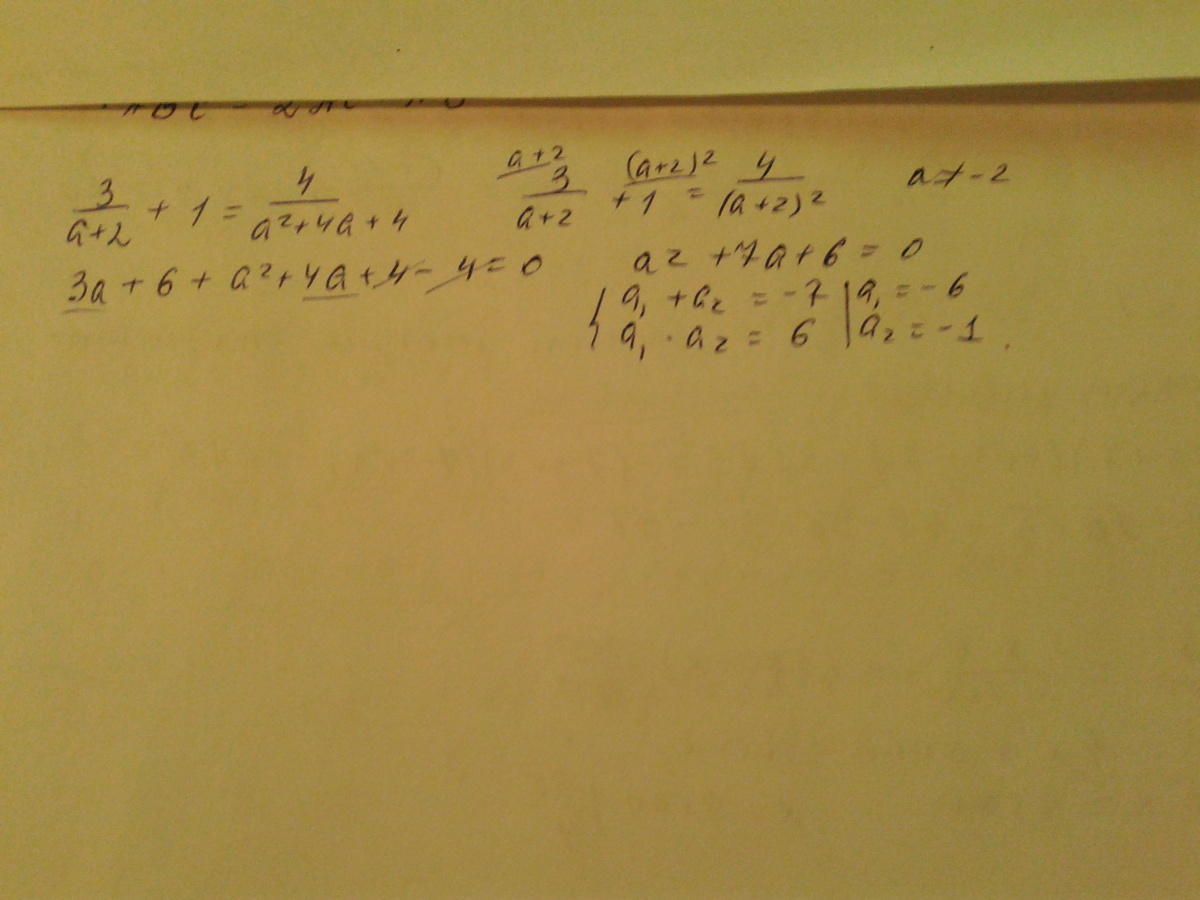 3/(a+2) + 1 = 4/(a²+4a+4)
a+2 (a+2)²
3/(a+2) + 1 = 4/(a+2)² a≠-2
3a + 6 + a² + 4a + 4 - 4 = 0 a² + 7a + 6 = 0
{ a₁ + a₂ = -7 | a₁ = -6
a₁ · a₂ = 6 | a₂ = -1.